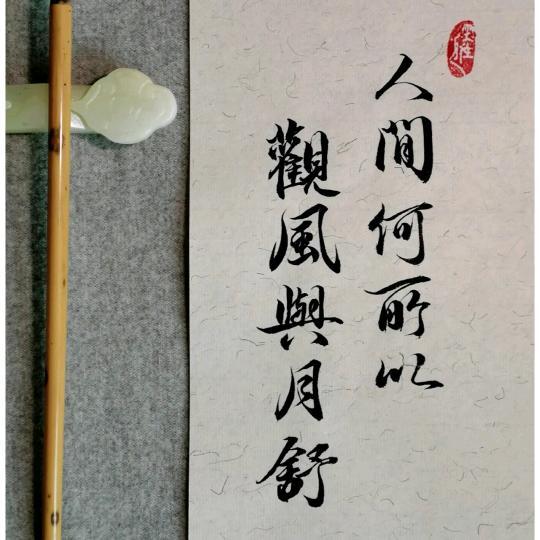 人間何所以
觀風與月舒